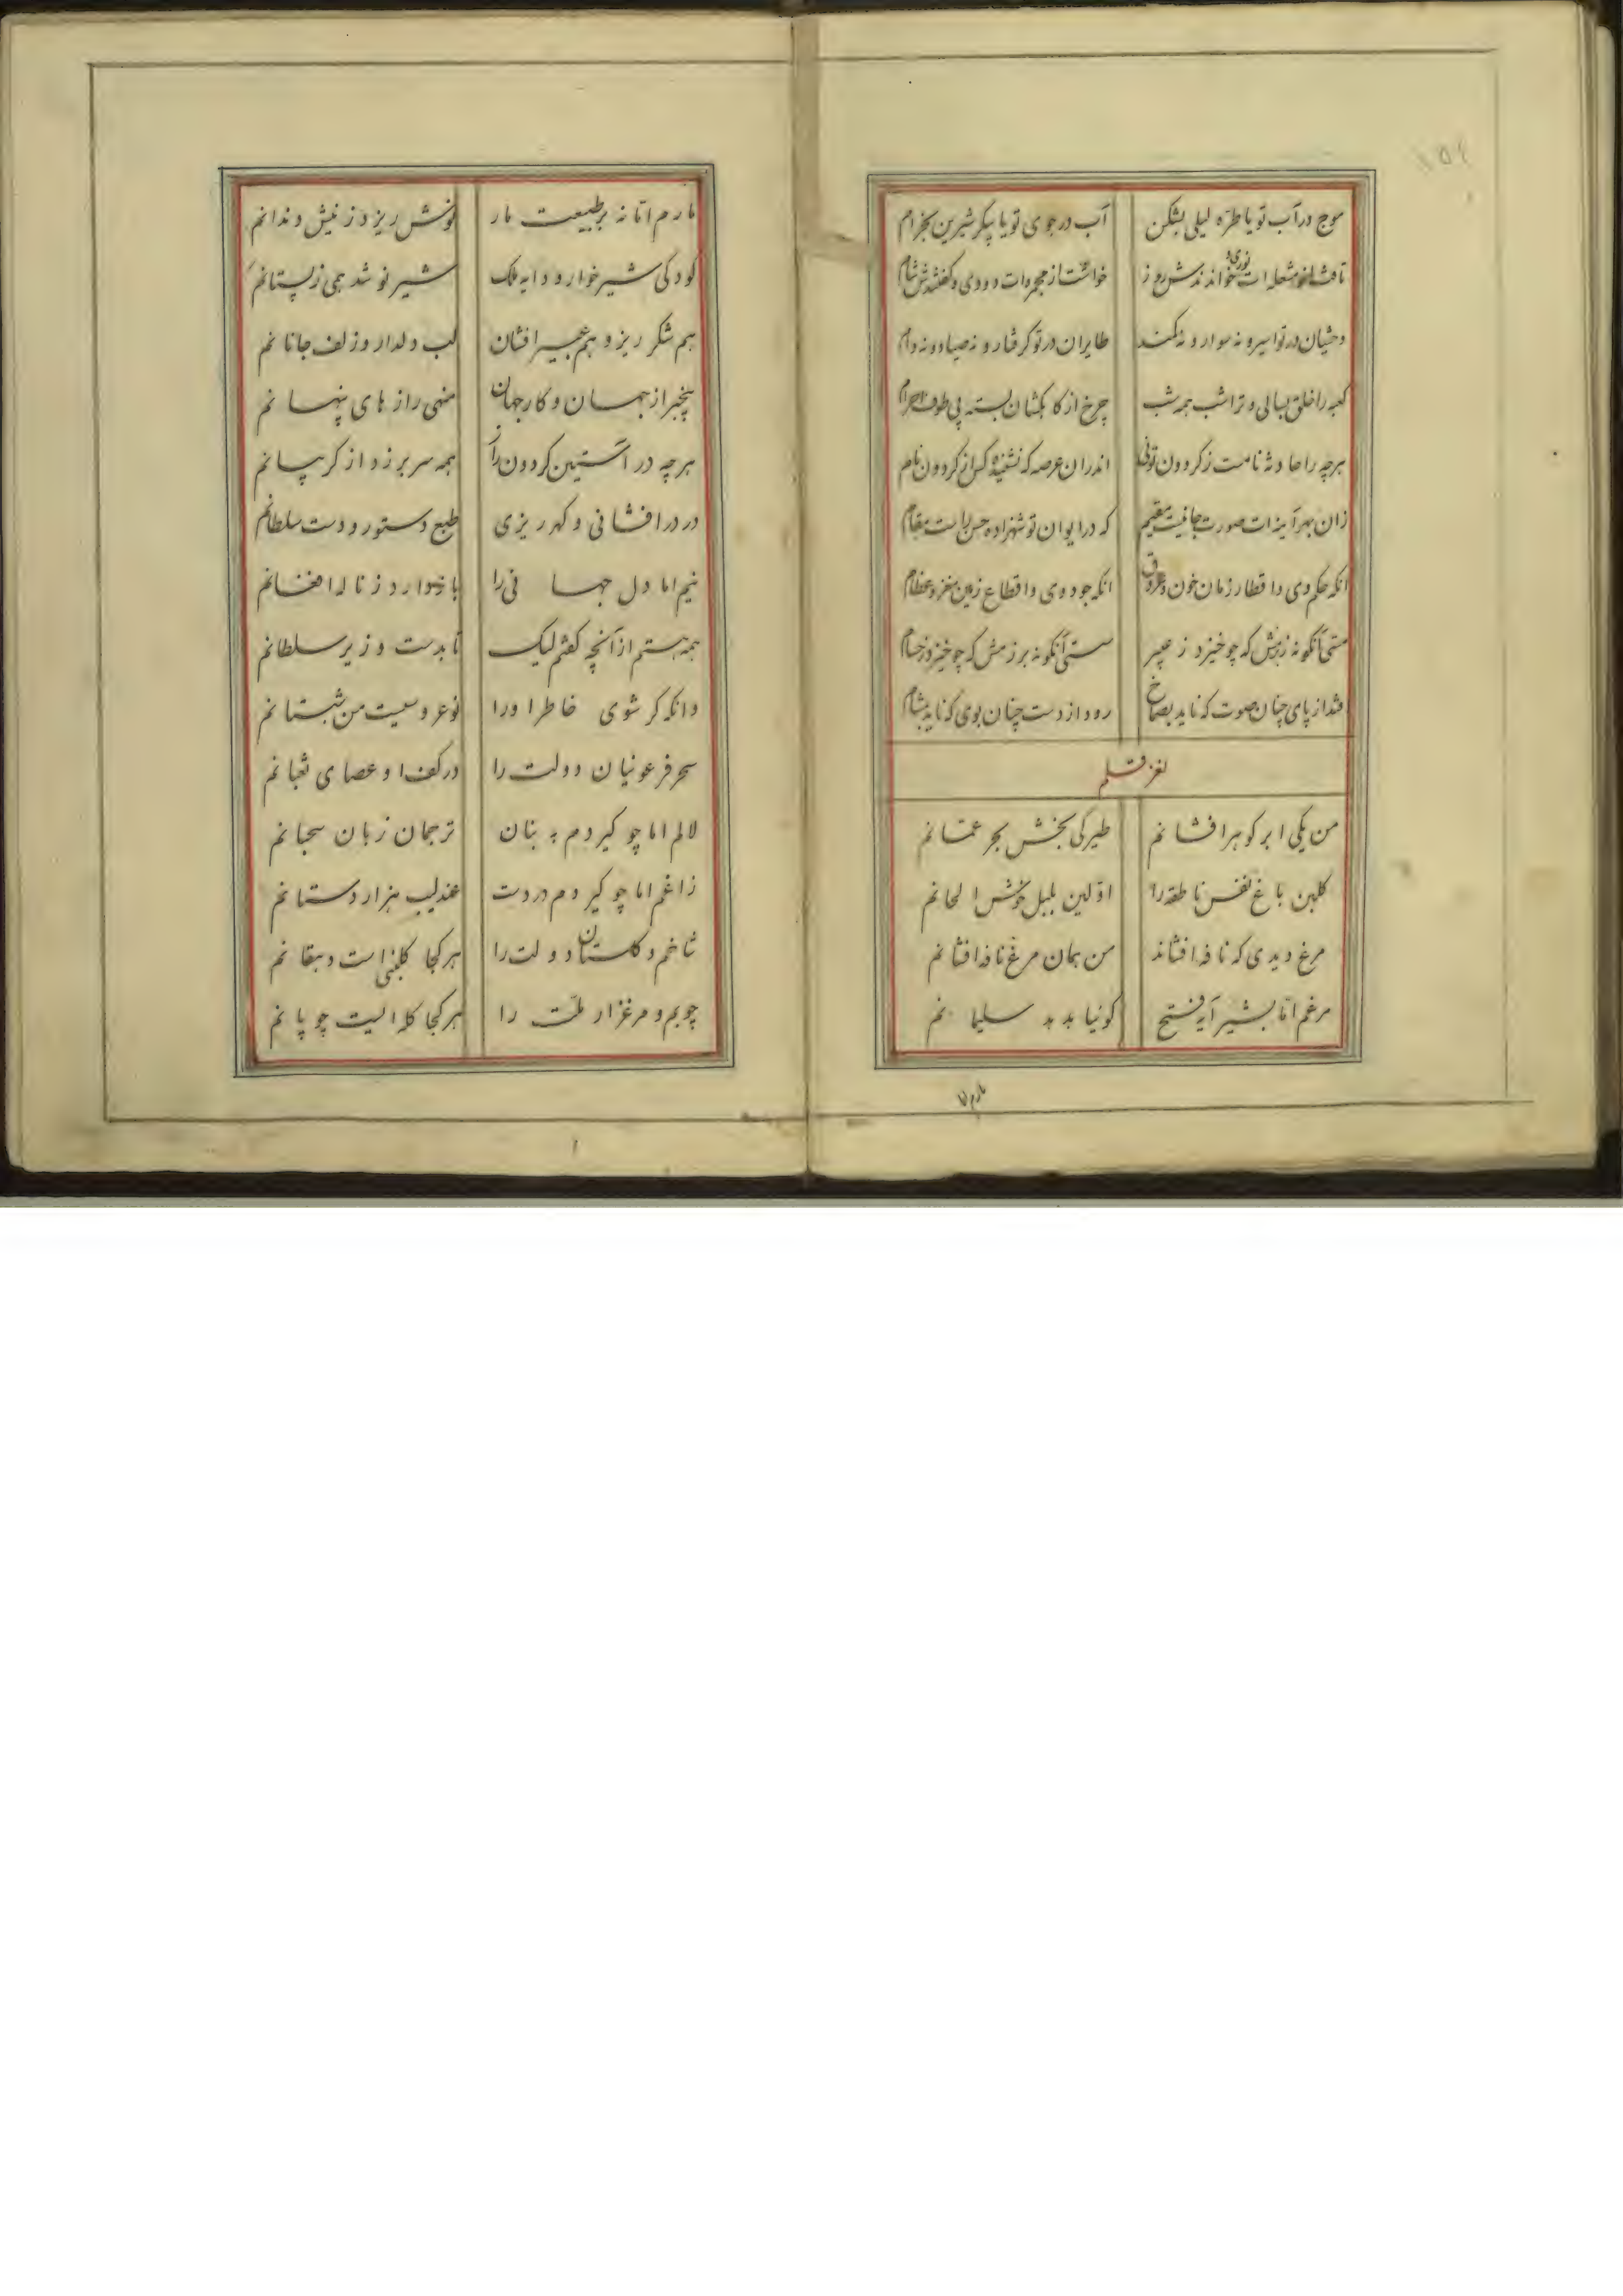 ۱۵۶
موج در آب تو یا طره لیلی بشکن آب در جوی تو یا پیکر شیرین بخرام
تافت از شعله ات نوری و خواندندش روز خواست از مجمرات دودی و گفتندش شام
وحشیان در تو اسیر و نه سوار و نه کمند طایران در تو گرفتار و نه صیاد و نه دام
کعبه را خلق بسالی و ترا شب همه شب چرخ از کاهکشان بسته پی طوف احرام
هر چه را حادثه نامست ز گردون توئی اندران عرصه که نشنیده کس از گردون نام
زان بهر آینه ات صورت جانیست مقیم که در ایوان تو شهزاده حسن راست مقام
آنکه حکم وی و اقطار زمان خون و عروق آنکه جود وی و اقطاع زمین مغز و عظام
مستی آنگونه ز بزمش که چو خیزد ز عبیر سستی آنگونه بر زمش که چو خیزد ز خیام
فتد از پای چنان صوت که ناید بصماخ رود از دست چنان بوی که ناید بمشام
لغز قلم
من یکی ابر گوهر افشانم طیرگی بخش بحر عمانم
گلبن باغ نفس ناطقه را اولین بلبل خوش الحانم
مرغ دیدی که نافه افشاند من همان مرغ نافه افشانم
مرغم اما بشیر آیه فتح گوئیا هدهد سلیمانم
مارم اما
مارم اما نه بر طبیعت مار نوش ریزد ز نیش دندانم
کودکی شیر خوار و دایه ملک شیر نوشد همی ز پستانم
هم شکر ریز و هم عبیر افشان لب دلدار و زلف جانانم
بیخبر از جهان و کار جهان منهی رازهای پنهانم
هر چه در آستین گردون راز همه سر بر زد از گریبانم
در در افشانی و گهر ریزی طبع دستور و دست سلطانم
نیم اما دل جهانی را بانیوارد ز ناله افغانم
همه هستم از آنچه گفتم لیک تا بدست وزیر سلطانم
وانکه گر شوی خاطر او را نوعروسیست من شبستانم
سحر فرعونیان دولت را در کف او عصای ثعبانم
لالم اما چو گیردم به بنان ترجمان زبان سحبانم
زاغم اما چو گیردم در دست عندلیب هزار دستانم
شاخم و گلستان دولت را هر کجا گلبنی است دهقانم
چوبم و مرغزار ملت را هر کجا گله ایست چوپانم